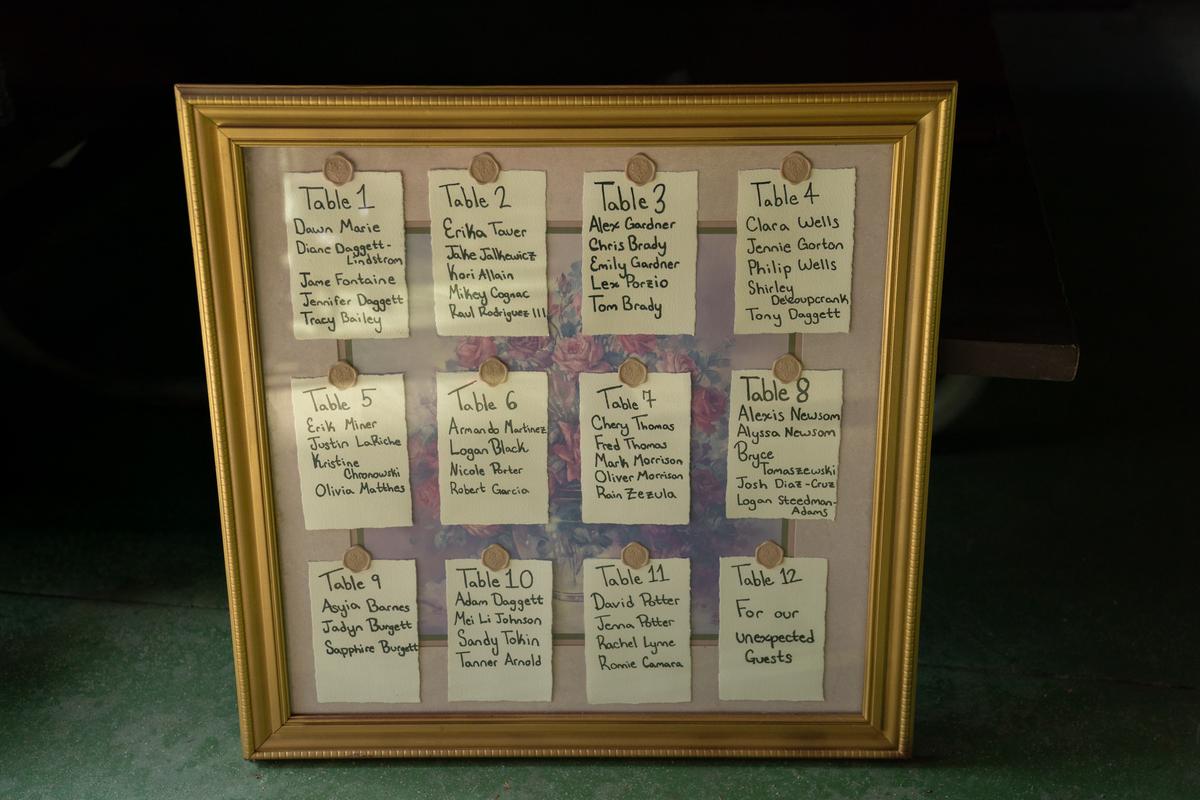 Table 1
Dawn Marie
Diane Daggett-
Lindstrom
Jame Fontaine
Jennifer Daggett
Tracy Bailey
Table 2
Erika Taver
Jake Jalkewicz
Kori Allain
Mikey Cognac
Raul Rodriguez III
Table 3
Alex Gardner
Chris Brady
Emily Gardner
Lex Porzio
Tom Brady
Table 4
Clara Wells
Jennie Gorton
Philip Wells
Shirley
Tony Daggett
Table 5
Erik Miner
Justin LaRiche
Kristine
Chronowski
Olivia Matthes
Table 6
Armando Martinez
Logan Black
Nicole Porter
Robert Garcia
Table 7
Chery Thomas
Fred Thomas
Mark Morrison
Oliver Morrison
Rain Zezula
Table 8
Alexis Newsom
Alyssa Newsom
Bryce
Tomaszewski
Josh Diaz-Cruz
Logan Steedman-
Adams
Table 9
Asyia Barnes
Jadyn Burgett
Sapphire Burgett
Table 10
Adam Daggett
Mei Li Johnson
Sandy Tokin
Tanner Arnold
Table 11
David Potter
Jenna Potter
Rachel Lynne
Romie Camara
Table 12
For our
unexpected
Guests